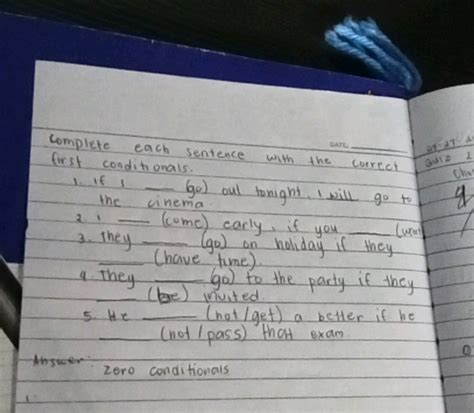 DATE:
Complete each sentence with the correct
first conditionals.
1. If I ___ (go) out tonight, I will go to
the cinema.
2. I ___ (come) early, if you ___ (want)
3. They ___ (go) on holiday if they
___ (have time).
4. They ___ go) to the party if they
___ (be) invited
5. He ___ (not/get) a better if he
___ (not/pass) that exam
Answer:
Zero conditionals
1.
Quiz 2